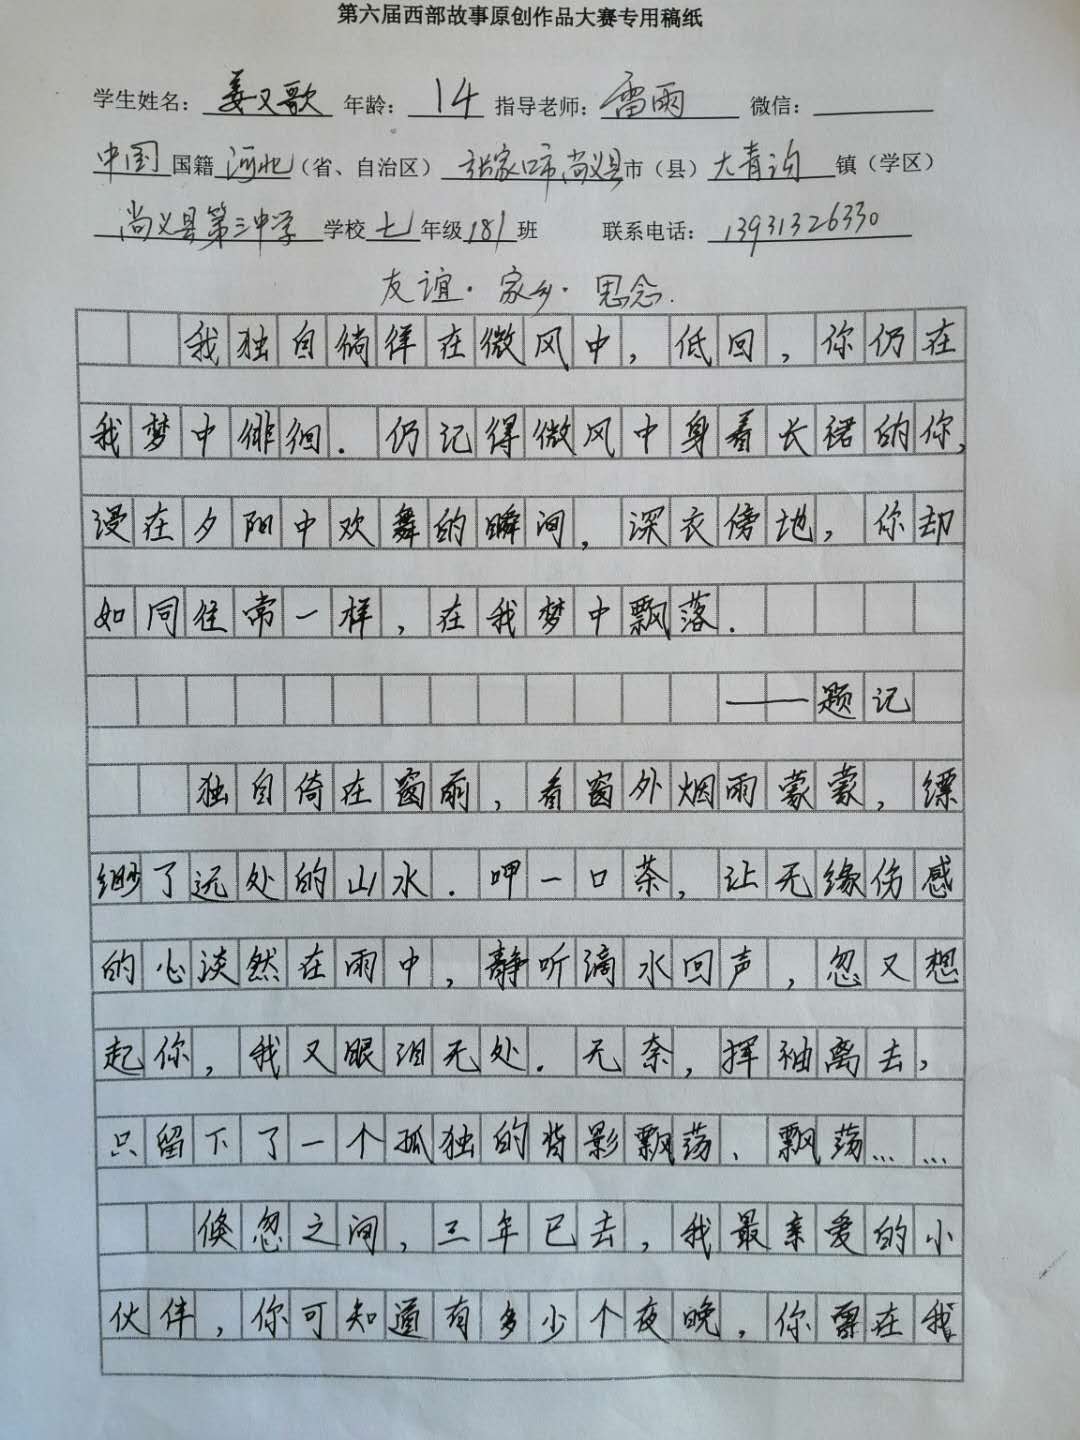 第六届西部故事原创作品大赛专用稿纸
学生姓名：姜又歌 年龄：14 指导老师：雷雨 微信：
中国 国籍 河北（省、自治区）张家口市尚义县市（县）大青沟 镇（学区）
尚义县第三中学 学校 七 年级 181 班 联系电话：13931326330
友谊·家乡·思念.
我独自徜徉在微风中，低回，你仍在
我梦中徘徊．仍记得微风中身着长裙的你，
浸在夕阳中欢舞的瞬间，深衣傍地，你却
如同往常一样，在我梦中飘落．
——题记
独自倚在窗前，看窗外烟雨蒙蒙，缥
缈了远处的山水．呷一口茶，让无缘伤感
的心淡然在雨中，静听滴水回声，忽又想
起你，我又眼泪无处．无奈，挥袖离去，
只留下了一个孤独的背影飘荡、飘荡……
倏忽之间，三年已去，我最亲爱的小
伙伴，你可知道有多少个夜晚，你在我